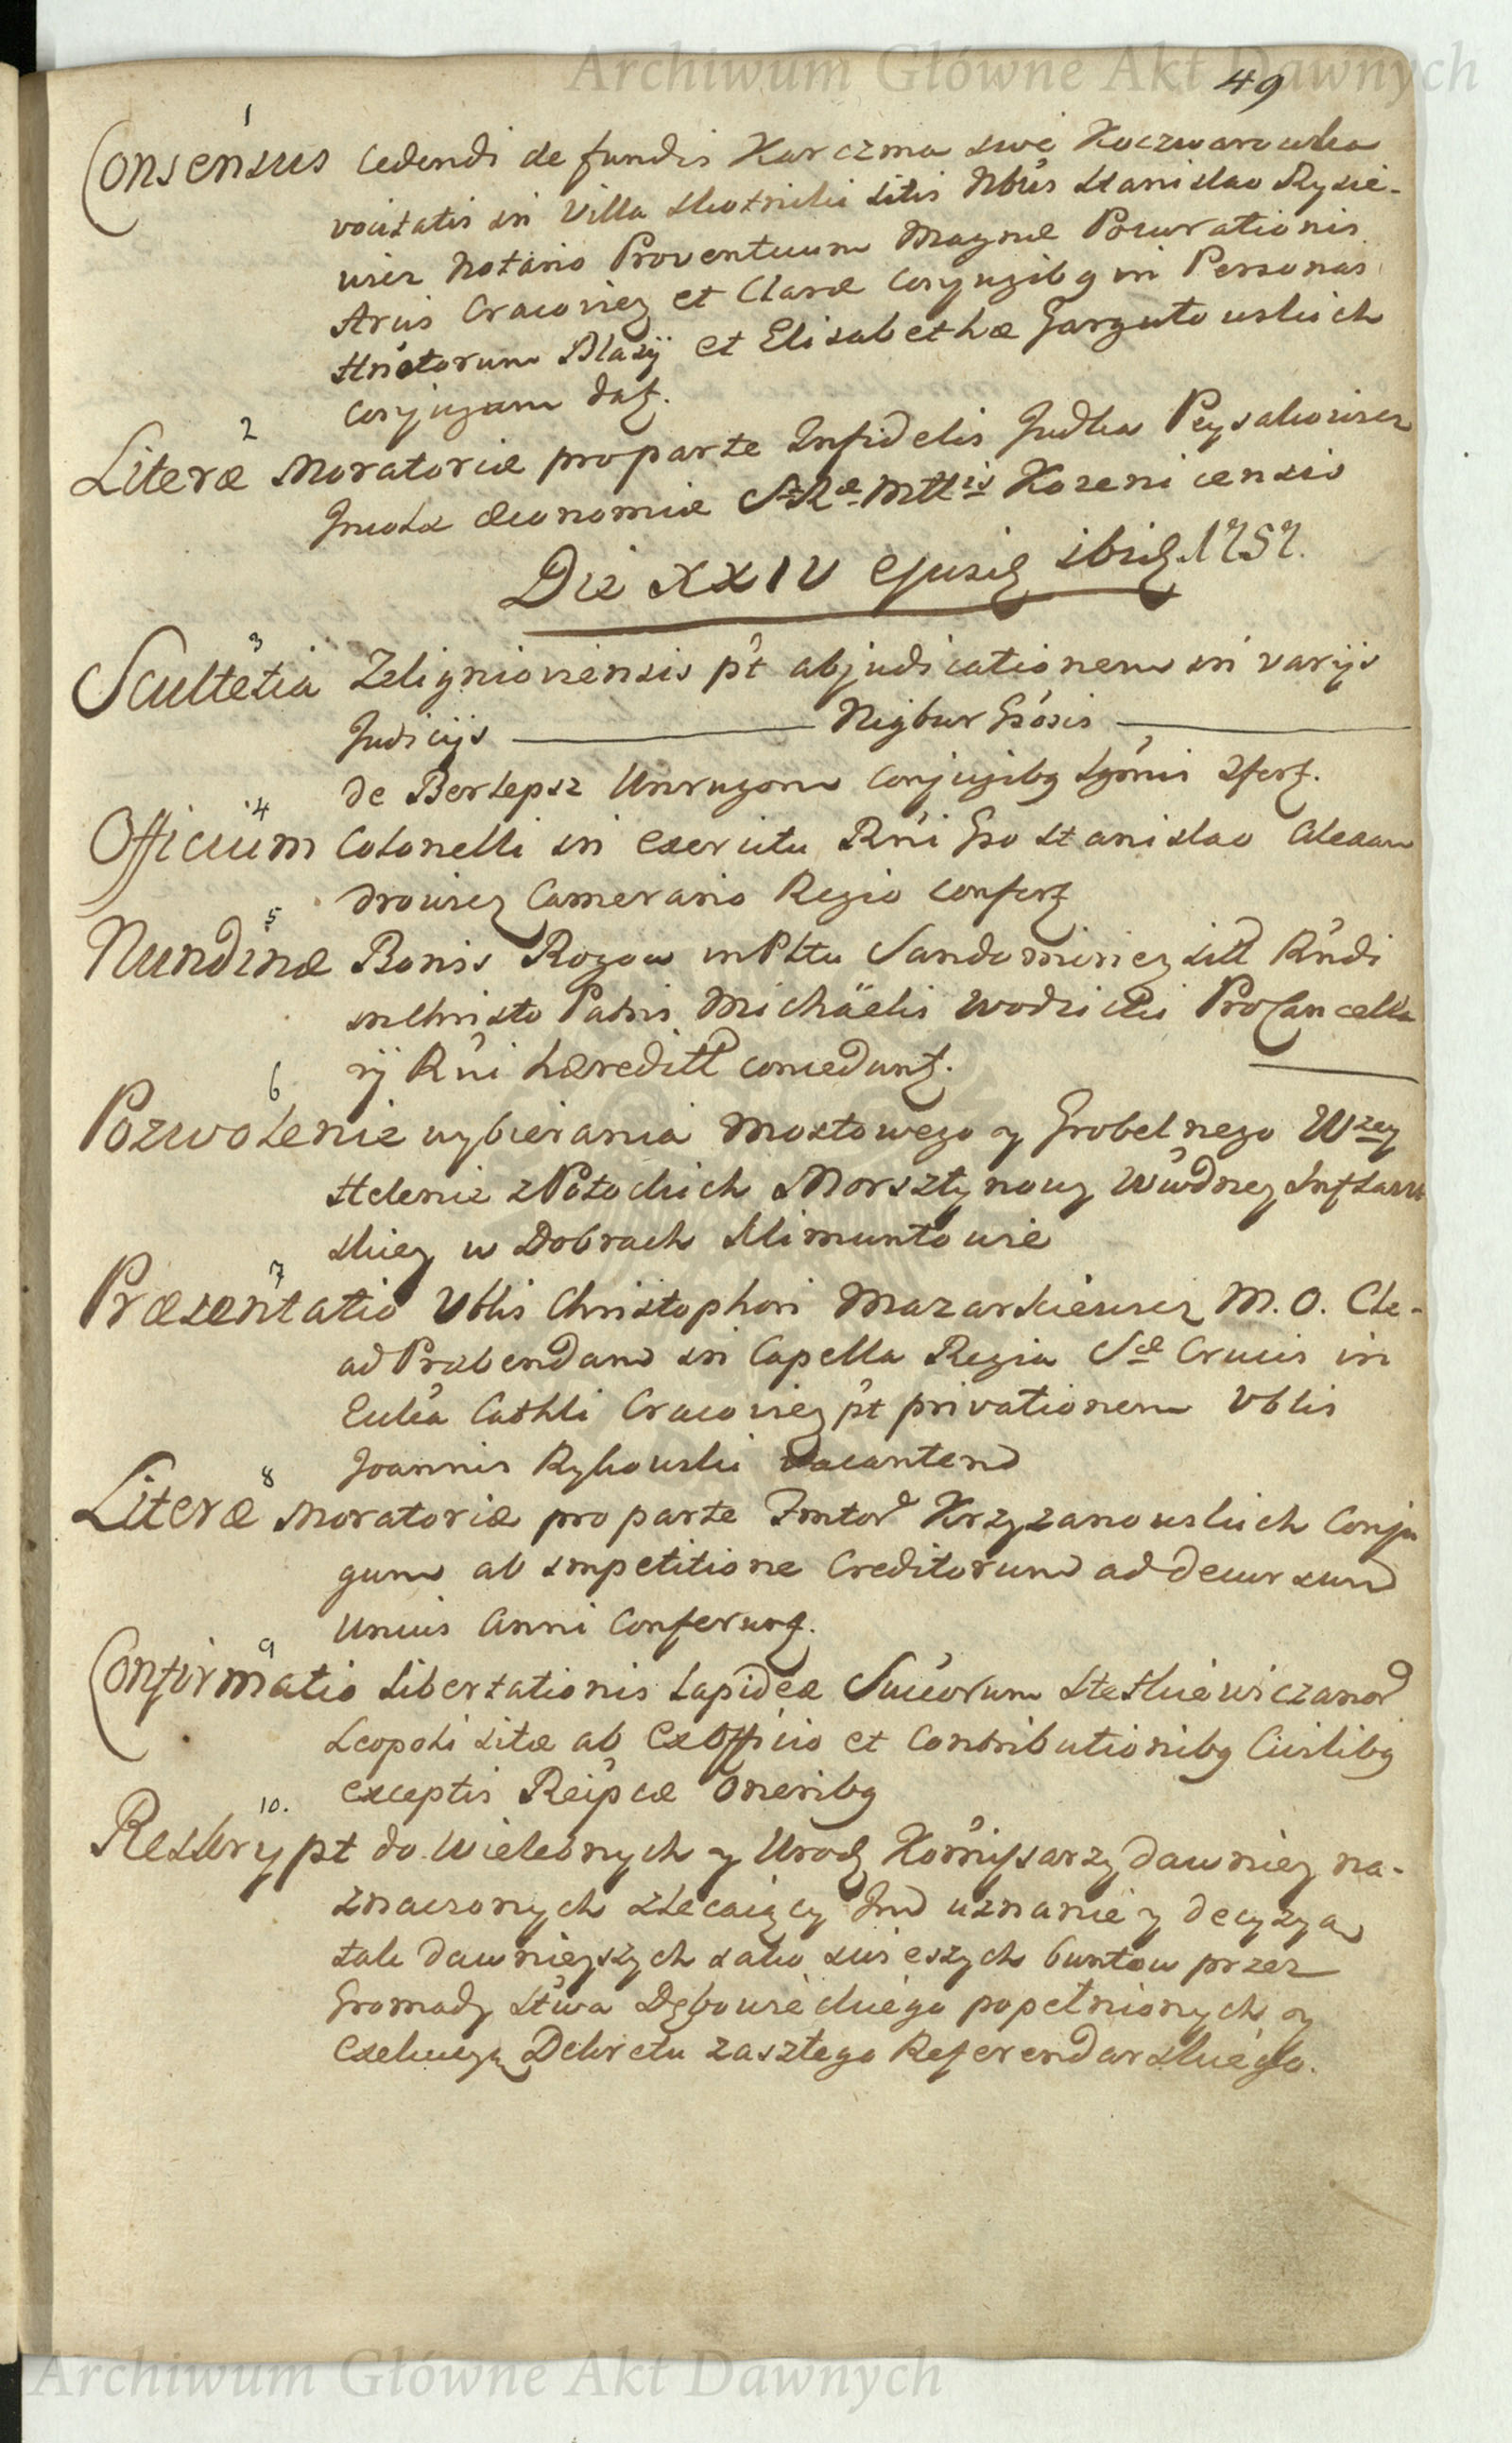 Archiwum Główne Akt Dawnych
49
1
Consensus cedendi de fundis Karczma sive Koczwarowska
vocitatis in Villa Skotniki sitis Nbus Stanislao Rysie-
wicz Notario Proventuum Magnæ Procurationis
Arcis Cracovien et Claræ Conjugibq in Personas
Hnstorum Blasij et Elisabethæ Gargutowskich
Conjugum datz.
2
Literæ Moratoriæ pro parte Infidelis Judka Peysakowicz
Incolæ Œconomiæ SæRæ Mttis Kozenicensis
Die XXIV ejusdz ibidz. 1757.
3
Scultetia Zelignioviensis pt abjudicationem in varijs
Judicijs Nigbur Gsosis
de Berlepsz Unrugom Conjugibq Sgnri Sfertz.
4
Officium Colonelli in Exercitu Rni Gso Stanislao Alexan
drowicz Camerario Regio Confertz
5
Nundinæ Bonis Rozow in Pltu Sandomirien sitt Rndi
in Christo Patris Michäelis Wodzicki ProCancella
rij Rni hæreditt conceduntz.
6
Pozwolenie wybierania Mostowego y Grobelnego Wzey
Helenie z Potockich Morsztynowy Wwdney Inflant
skiey w Dobrach Klimuntowie
7
Præsentatio Vblis Christophori Mazarkiewicz M. O. Cle-
ad Præbendam in Capella Regia Scæ Crucis in
Ecclia Cathli Cracovien pt privationem Vblis
Joannis Rybowski vacantem
8
Literæ Moratoriæ pro parte Fmtor Krzyzanowskich Conju
gum ab impetitione Creditorum ad decursum
Unius Anni Conferuntz.
9
Confirmatio libertationis lapideæ Succorum Steskiewiczanor
Leopoli sitæ ab ExOfficio et Contributionibq Civilibq
exceptis Reipcæ Oneribq
10.
Reskrypt do Wielebnych y Urodz Kommissarzy dawniey na-
znaczonych zlecaiący Im uznanie y decyzyą
tak dawnieyszych iako swieszych buntow przez
Gromady Stwa Dębowieckiego popełnionych y
Exekucyą Dekretu zaszłego Referendarskiego.
Archiwum Główne Akt Dawnych